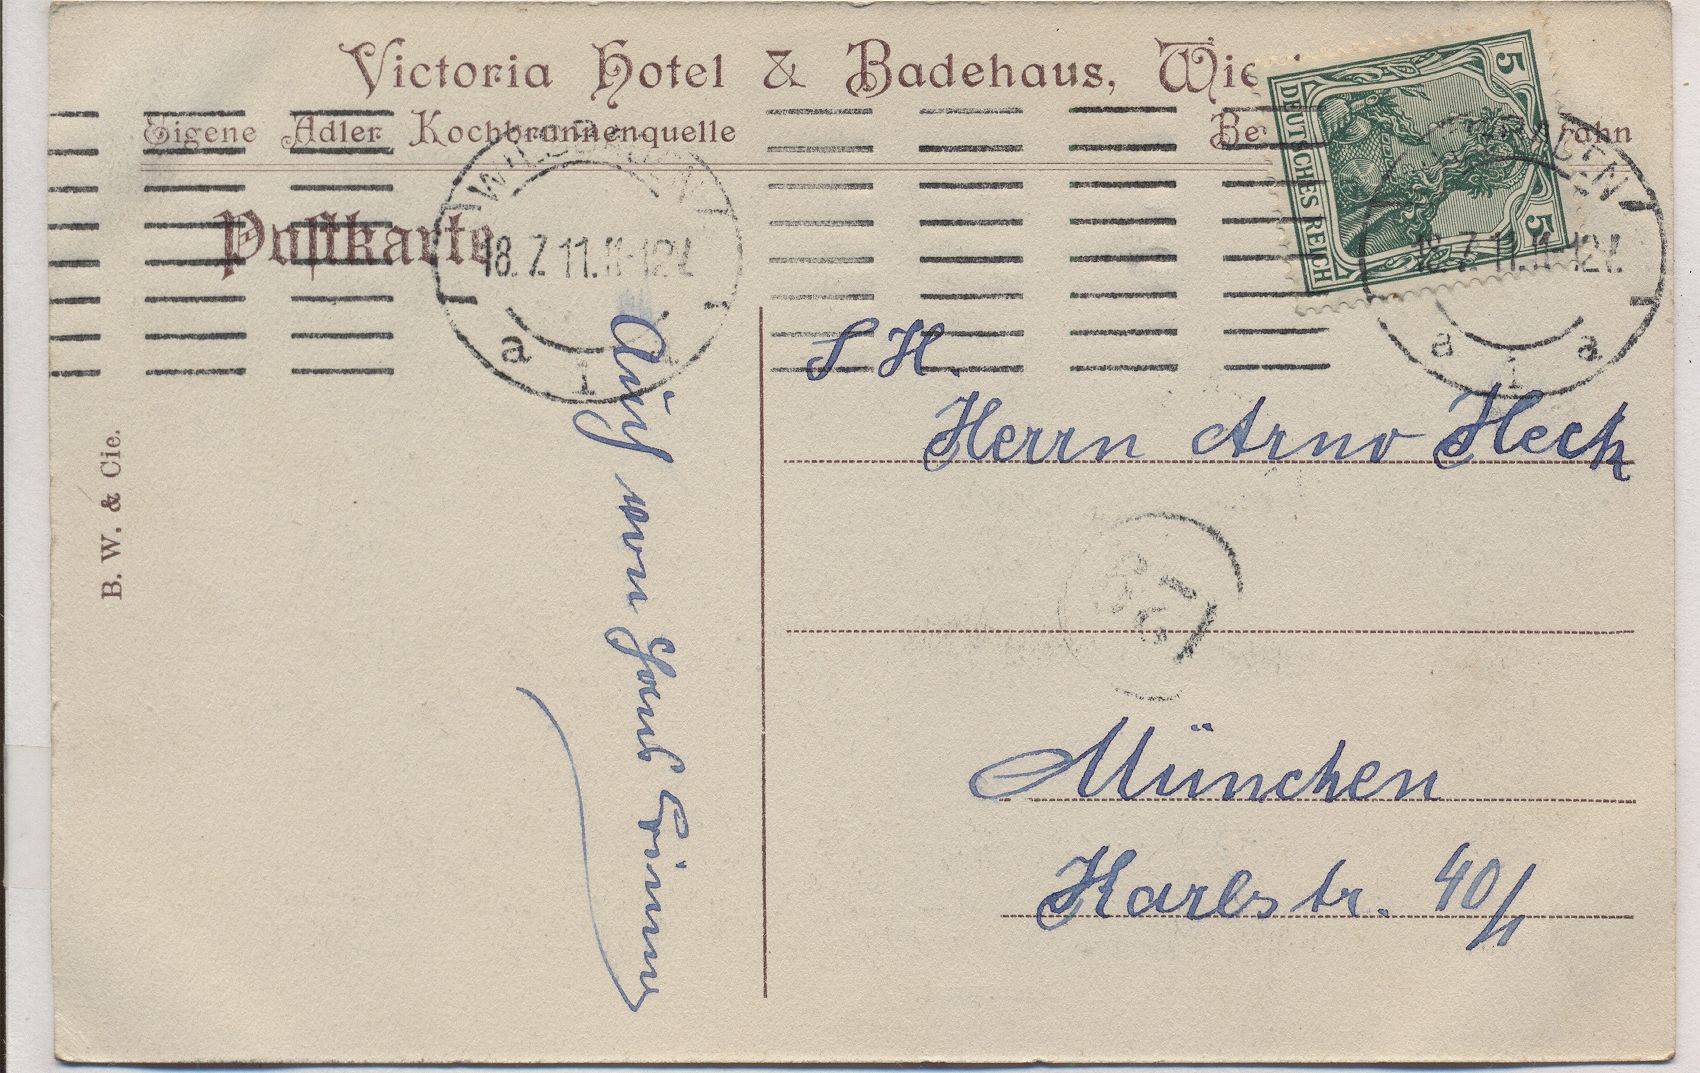 Victoria Hotel & Badehaus, Wie
Eigene Adler Kochbrunnenquelle
Be
rahn
Postkarte
WIESBADEN
18.7.11.11-12V.
a 1 a
WIESBADEN
18.7.11.11-12V.
a 1 a
5
5
DEUTSCHES REICH
B. W. & Cie.
S H.
Herrn Arno Hech
München
Karlstr. 40/1
Auch von